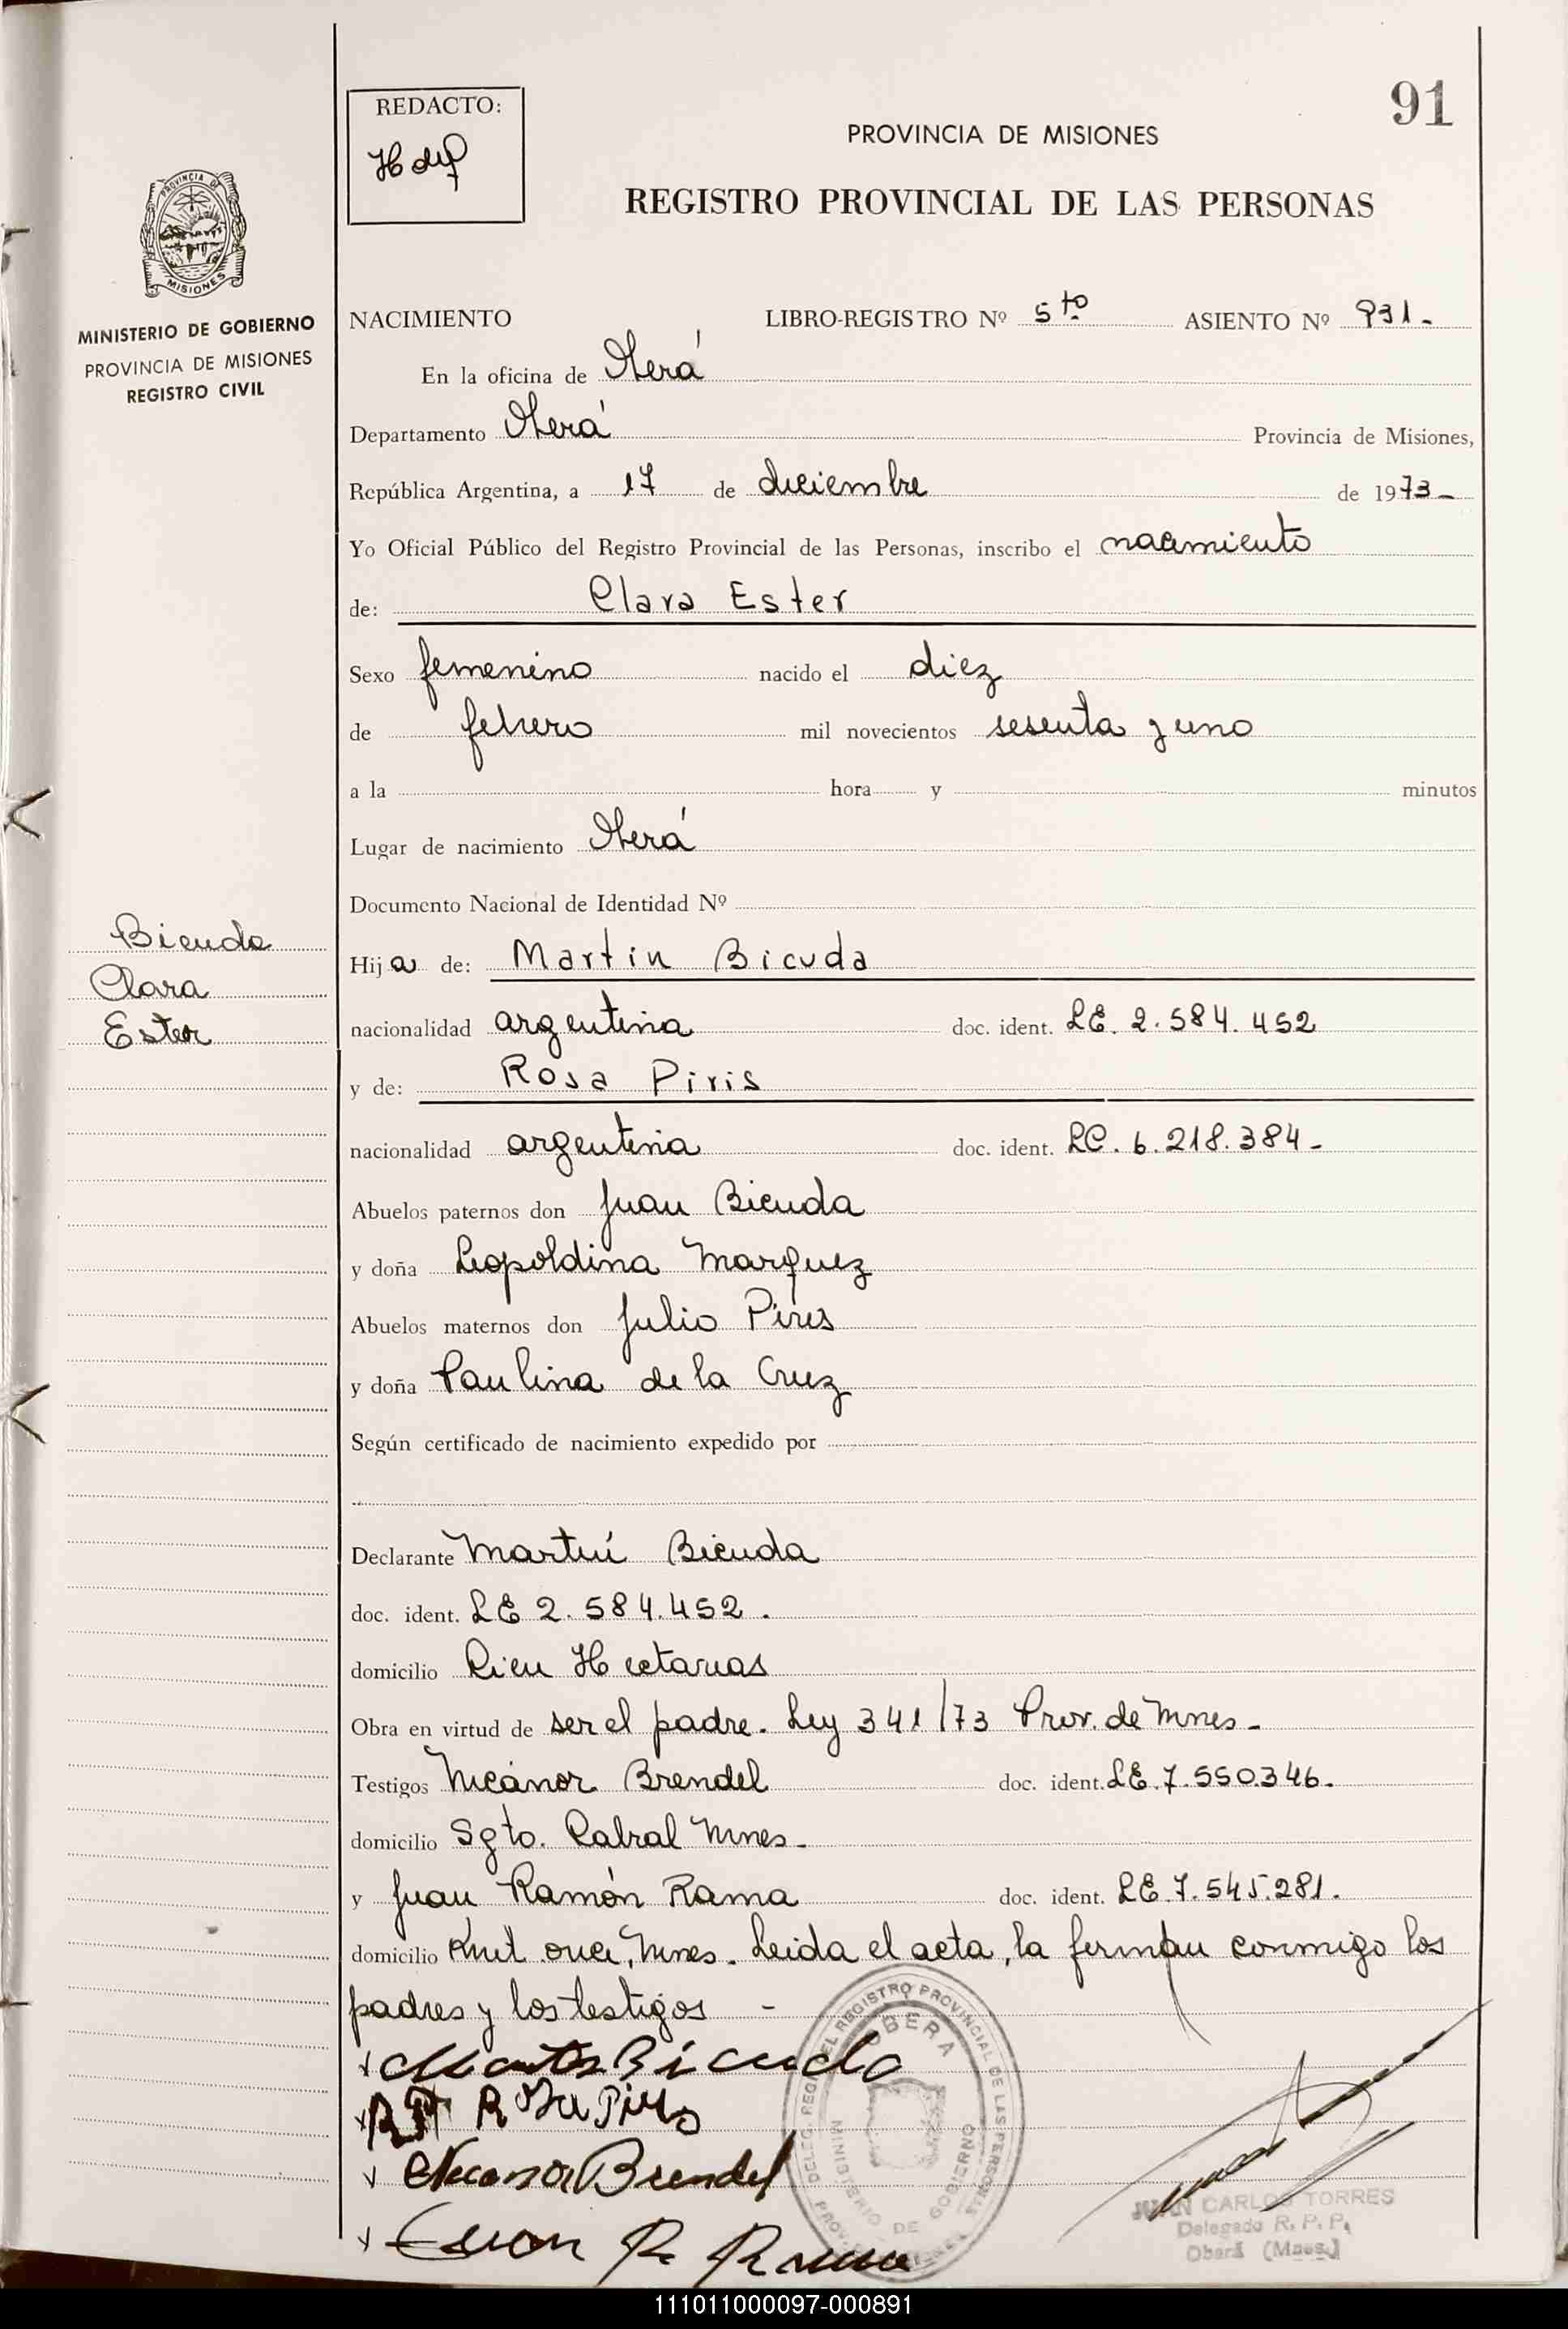 91
REDACTO:
PROVINCIA DE MISIONES
REGISTRO PROVINCIAL DE LAS PERSONAS
PROVINCIA DE
MISIONES
MINISTERIO DE GOBIERNO
PROVINCIA DE MISIONES
REGISTRO CIVIL
NACIMIENTO LIBRO-REGISTRO Nº 5to ASIENTO Nº 931.-
En la oficina de Oberá
Departamento Oberá Provincia de Misiones,
República Argentina, a 17 de diciembre de 1973-
Yo Oficial Público del Registro Provincial de las Personas, inscribo el nacimiento
de: Clara Ester
Sexo femenino nacido el diez
de febrero mil novecientos sesenta y uno
a la hora y minutos
Lugar de nacimiento Oberá
Documento Nacional de Identidad Nº
Bicuda
Clara
Ester
Hija de: Martin Bicuda
nacionalidad argentina doc. ident. LE. 2.584.452
y de: Rosa Piris
nacionalidad argentina doc. ident. LC. 6.218.384-
Abuelos paternos don Juan Bicuda
y doña Leopoldina Marquez
Abuelos maternos don Julio Piris
y doña Paulina de la Cruz
Según certificado de nacimiento expedido por
Declarante Martin Bicuda
doc. ident. LE 2.584.452.
domicilio Cien Hectareas
Obra en virtud de ser el padre. Ley 341/73 Prov. de Mnes-
Testigos Nicanor Brendel doc. ident. LE.7.550.346.
domicilio Sgto. Cabral Mnes-
y Juan Ramón Rama doc. ident. LE 7.545.281.
domicilio Kmt. once, Mnes. Leida el acta, la firman conmigo los
padres y los testigos -
Martin Bicuda
Rosa Piris
Nicanor Brendel
Juan R. Rama
DELEG. REGI. DEL REGISTRO PROVINCIAL DE LAS PERSONAS
OBERA
MINISTERIO DE GOBIERNO
JUAN CARLOS TORRES
Delegado R. P. P.
Oberá (Mnes.)
111011000097-000891